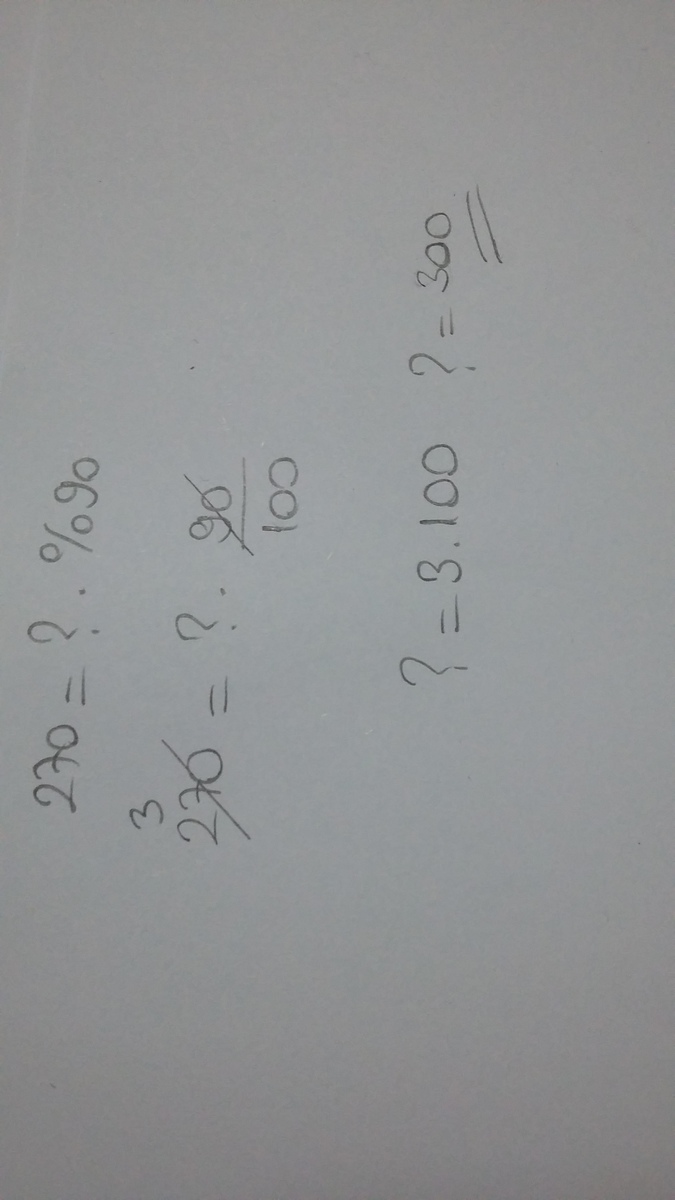 270 = ? . %90
3
270 = ? . 90/100
? = 3.100 ? = 300